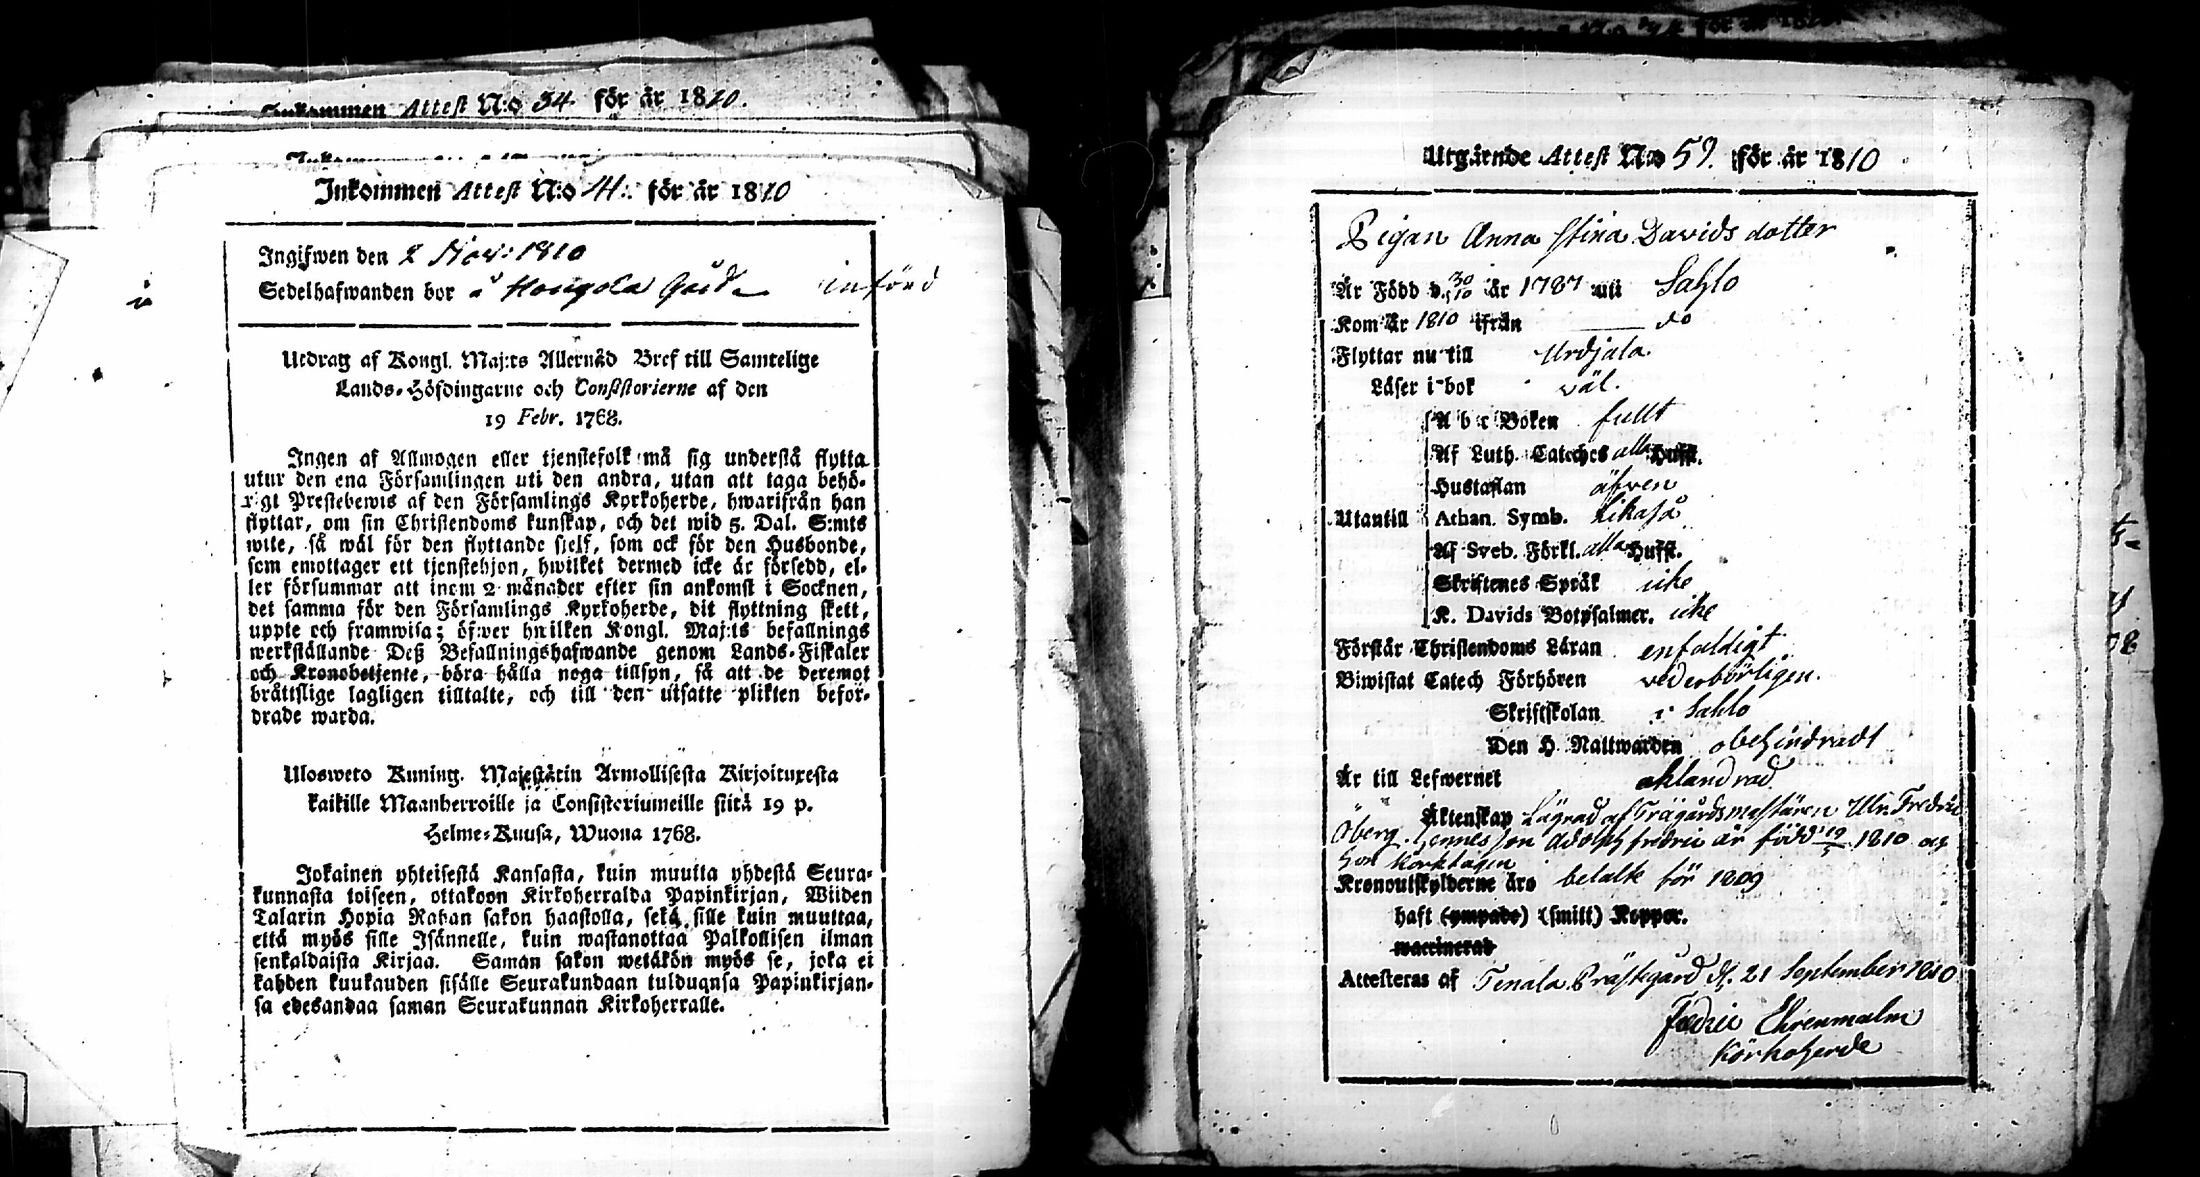 Inkommen Attest N:o 34 för år 1810.
Inkommen Attest N:o 4: för år 1810
Ingifwen den 2 Nov: 1810
Sedelhafwanden bor å Gård införd
Utdrag af Kongl. Maj:ts Allernåd Bref till Samtelige
Lands-Höfdingarne och Consistorierne af den
19 Febr. 1768.
Ingen af Allmogen eller tjenstefolk må sig understå flytta
utur den ena Församlingen uti den andra, utan att taga behö-
rigt Prestebewis af den Församlings Kyrkoherde, hwarifrån han
flyttar, om sin Christendoms kunskap, och det wid 5. Dal. S:mts
wite, så wäl för den flyttande sjelf, som ock för den Husbonde,
som emottager ett tjenstehjon, hwilket dermed icke är försedd, el-
ler försummar att inom 2 månader efter sin ankomst i Socknen,
det samma för den Församlings Kyrkoherde, dit flyttning skett,
uppte och framwisa; öfwer hwilken Kongl. Maj:ts befallnings
werkställande Deß Befallningshafwande genom Lands-Fiskaler
och Kronobetjente, böra hålla noga tillsyn, så att de deremot
bråttslige lagligen tilltalte, och till den utsatte plikten befor-
drade warda.
Ulosweto Kuning. Majestätin Armollisesta Kirjoituxesta
kaikille Maanherroille ja Consistoriumeille siitä 19 p.
Helme-Kuusa, Wuona 1768.
Jokainen yhteisestä Kansasta, kuin muutta yhdestä Seura-
kunnasta toiseen, ottakoon Kirkoherralda Papinkirjan, Wiiden
Talarin Hopia Rahan sakon haastolla, sekä sille kuin muuttaa,
että myös sille Isännelle, kuin wastanottaa Palkollisen ilman
senkaldaista Kirjaa. Saman sakon wetäkön myös se, joka ei
kahden kuukauden sisälle Seurakundaan tulduansa Papinkirjan-
sa edesandaa saman Seurakunnan Kirkoherralle.
Utgående Attest N:o 59. för år 1810
Pigan Anna Stina Davids dotter
Är Född d. 30/10 år 1787 uti Sahlo
Kom år 1810 ifrån do
Flyttar nu till Urdjala
Läser i bok väl.
Utantill
A b c Boken fullt
Af Luth. Cateches alla Hufst.
Hustaflan äfven
Athan. Symb. likaså
Af Sveb. Förkl. alla Hufst.
Skriftenes Språk icke
K. Davids Botpsalmer. icke
Förstår Christendoms Läran enfaldigt
Biwistat Catech Förhören vederbörligen.
Skriftskolan i Sahlo
Den H. Nattwarden obehindradt
Är till Lefwernet oklandrad
Äktenskap Lägrad af Trägårdsmästaren Ulr. Fredric
Öberg. hennes son Adolph fredric är född 19/5 1810 och
hon Kyrktagin
Kronoutskylderne äro betalte för 1809
haft (ympade) (smitt) Koppor.
waccinerad
Attesteras af Tenala Prästegård d. 21 September 1810
Fredric Ehrenmalm
Kyrkoherde